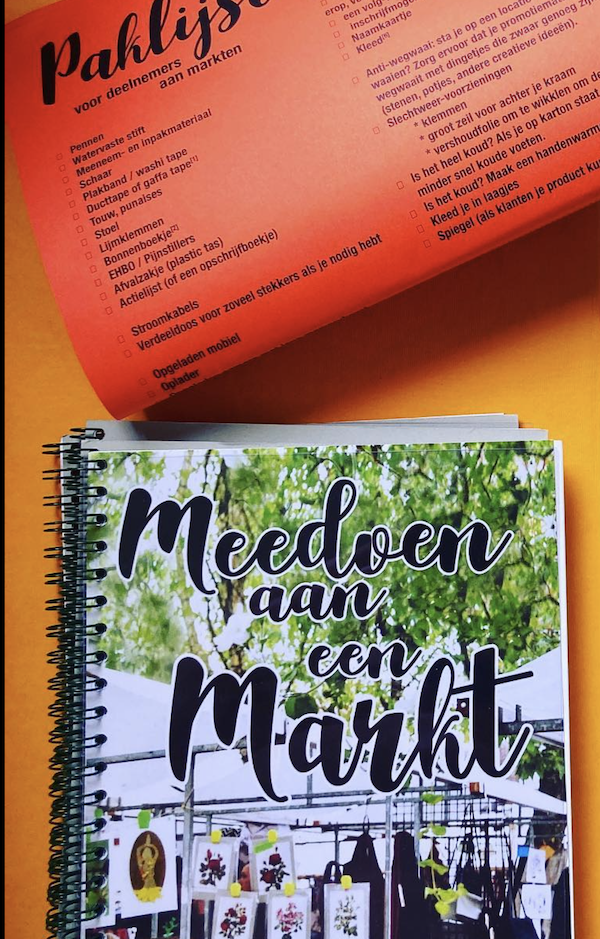 Paklijst
voor deelnemers
aan markten
Pennen
Watervaste stift
Meeneem- en inpakmateriaal
Schaar
Plakband / washi tape
Ducttape of gaffa tape[1]
Touw, punaises
Stoel
Lijmklemmen
Bonnenboekje[2]
EHBO / Pijnstillers
Afvalzakje (plastic tas)
Actielijst (of een opschrijfboekje)
Stroomkabels
Verdeeldoos voor zoveel stekkers als je nodig hebt
Opgeladen mobiel
Oplader
erop,
een volg
inschrijfmoge
Naamkaartje
Kleed[5]
Anti-wegwaai: sta je op een locatie
waaien? Zorg ervoor dat je promotiemat
wegwaait met dingetjes die zwaar genoeg zijn
(stenen, potjes, andere creatieve ideeën).
Slechtweer-voorzieningen
* klemmen
* groot zeil voor achter je kraam
* vershoudfolie om te wikklen om de
Is het heel koud? Als je op karton staat
minder snel koude voeten.
Is het koud? Maak een handenwarm
Kleed je in laagjes
Spiegel (als klanten je product ku
Meedoen
aan
een
Markt